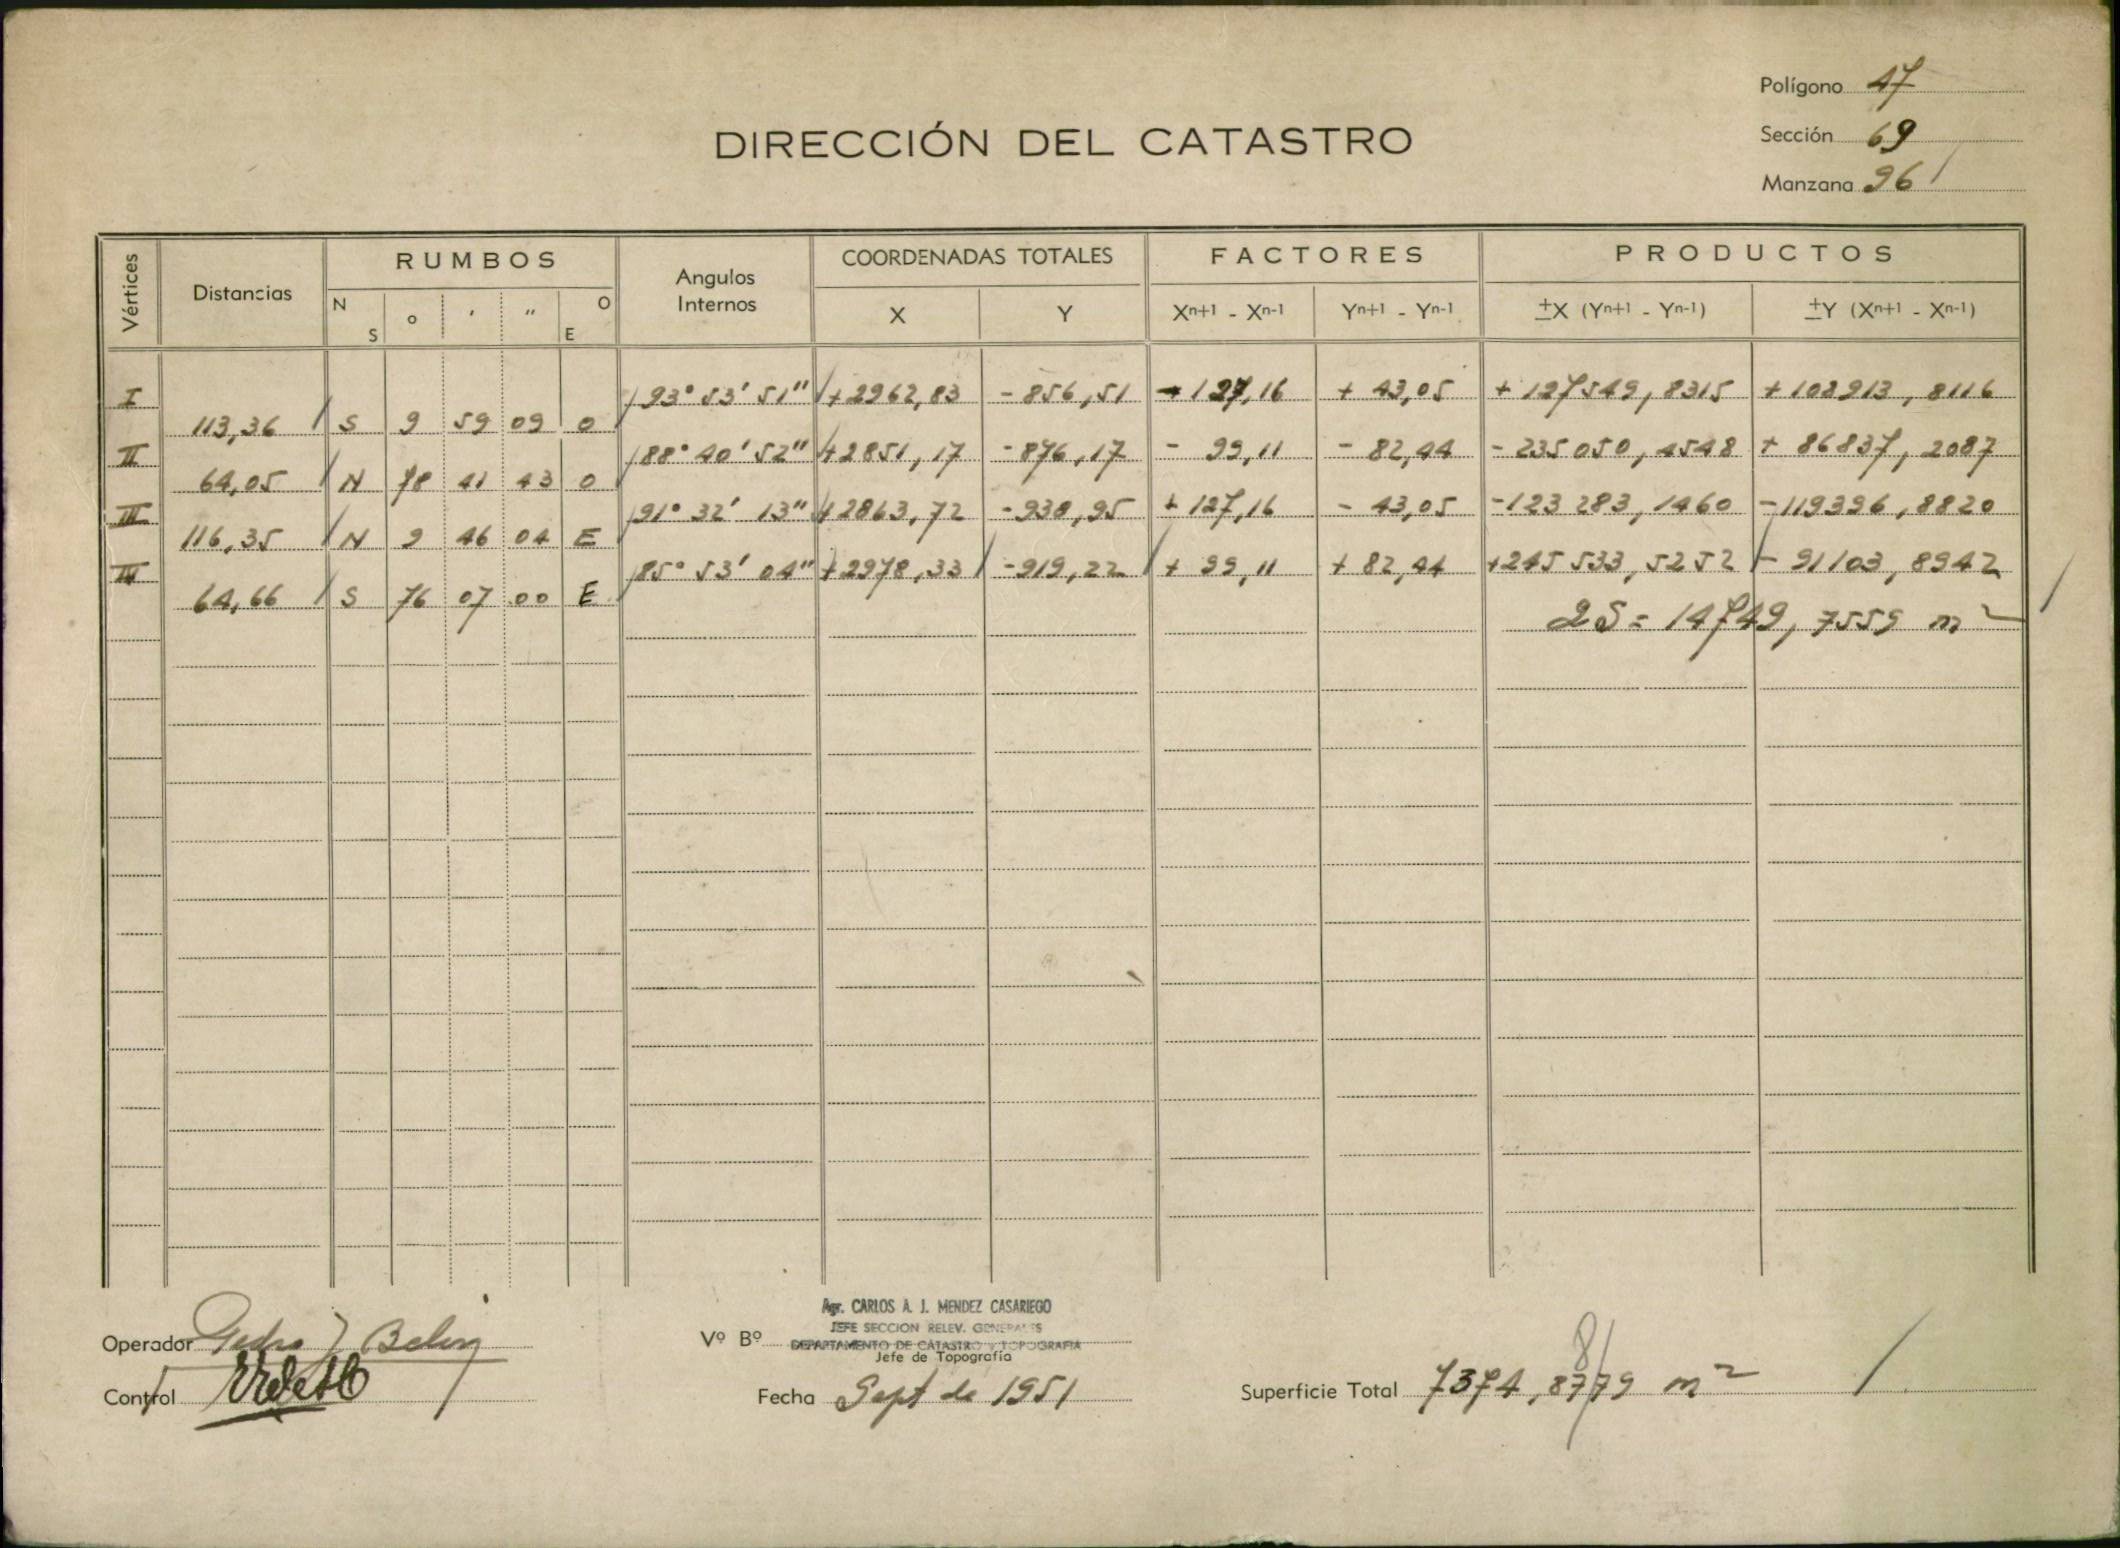 Polígono 47
DIRECCIÓN DEL CATASTRO
Sección 69
Manzana 96
Vértices Distancias RUMBOS Angulos Internos COORDENADAS TOTALES FACTORES PRODUCTOS
N S o ' " O E X Y Xn+1 - Xn-1 Yn+1 - Yn-1 ±X (Yn+1 - Yn-1) ±Y (Xn+1 - Xn-1)
I 93° 53' 51" +2962,83 -856,51 - 127,16 + 43,05 + 127549,8315 + 108913,8116
113,36 S 9 59 09 O
II 88° 40' 52" +2851,17 -876,17 - 99,11 - 82,44 - 235050,4548 + 86837,2087
64,05 N 78 41 43 O
III 91° 32' 13" +2863,72 -938,95 + 127,16 - 43,05 -123283,1460 -119396,8820
116,35 N 9 46 04 E
IV 85° 53' 04" +2978,33 -919,22 + 99,11 + 82,44 +245533,5252 - 91103,8942
64,66 S 76 07 00 E
2S = 14749,7559 m²
Agr. CARLOS A. J. MENDEZ CASARIEGO
JEFE SECCION RELEV. GENERALES
Operador Pedro J Vº Bº DEPARTAMENTO DE CATASTRO y TOPOGRAFIA
Jefe de Topografía
8
Control Fecha Sept de 1951 Superficie Total 7374,8779 m²